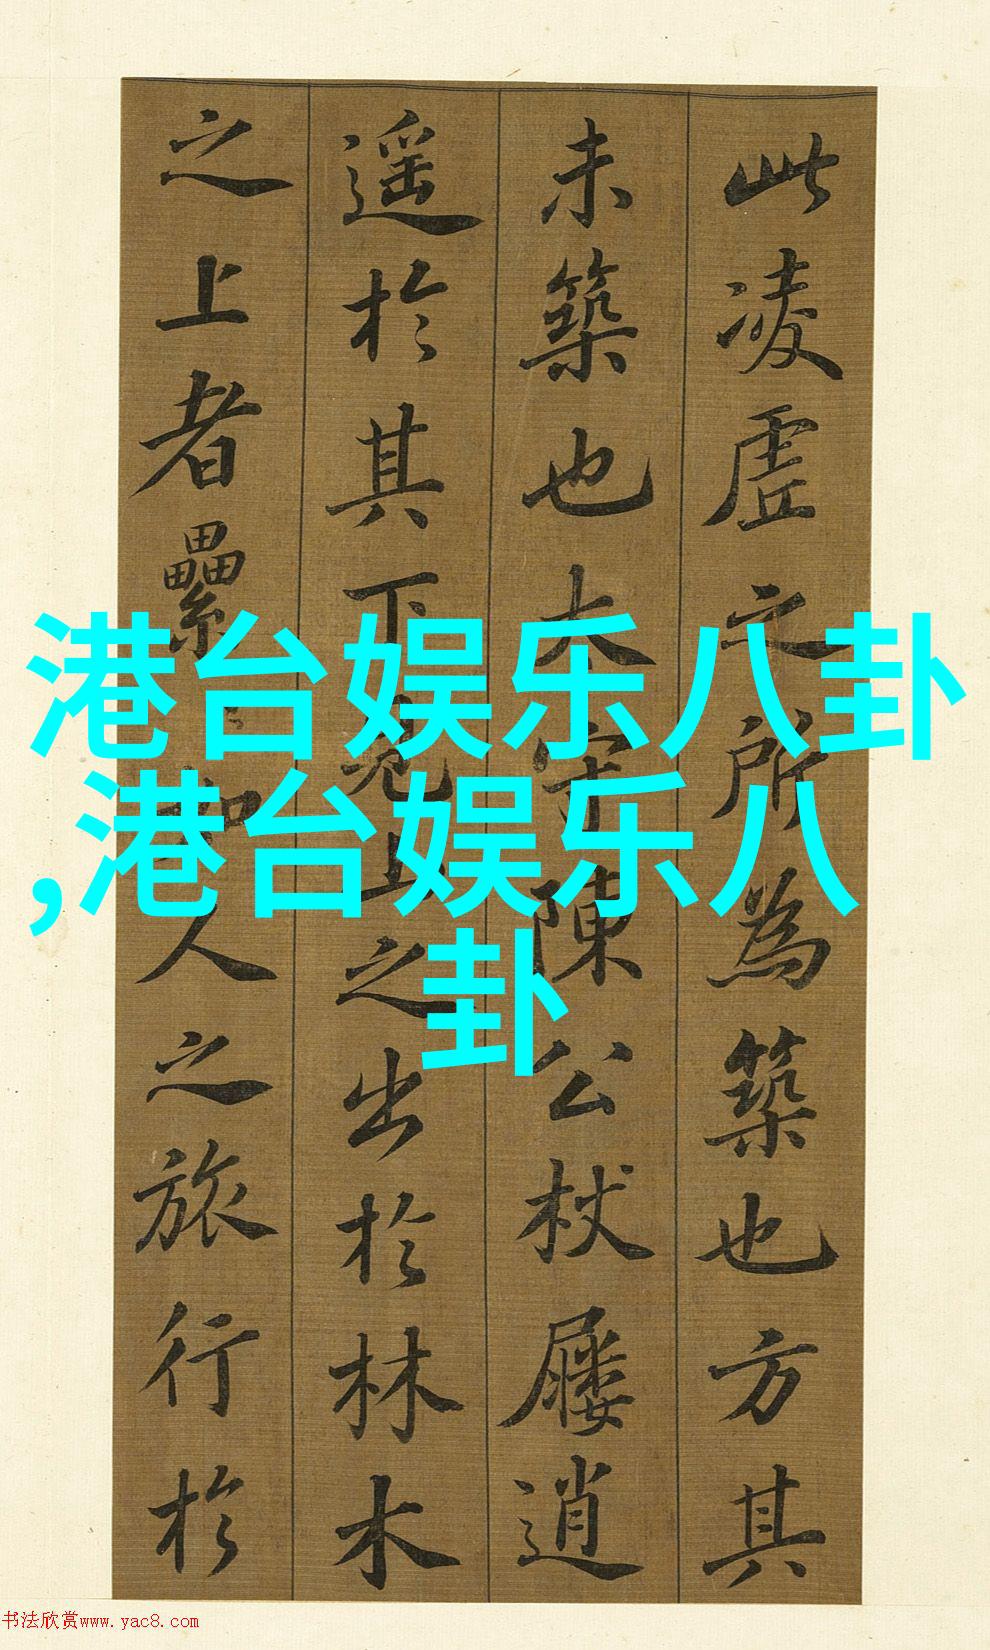 此凌虗之所為築也方其
未築也太守陳公杖屨逍
遥於其下見山之出於林木
之上者纍〻如人之旅行於
港台娱乐八卦
,港台娱乐八
卦
书法欣赏www.yac8.com